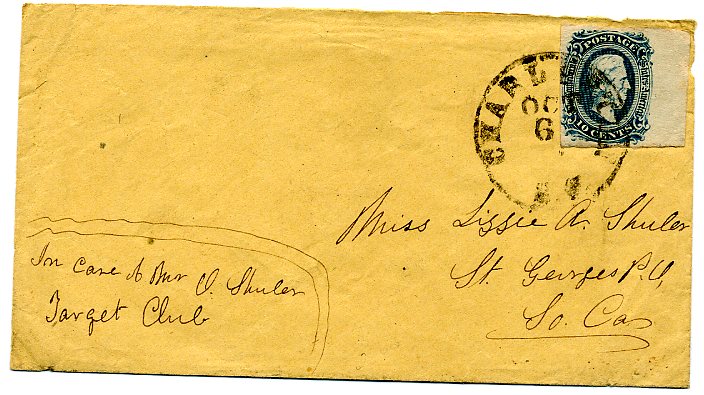 POSTAGE
10 CENTS
CHARL
OC
6
Miss Lizzie A. Shuler
St. Georges P.O,
So. Ca
In care of Mr O. Shuler
Target Club